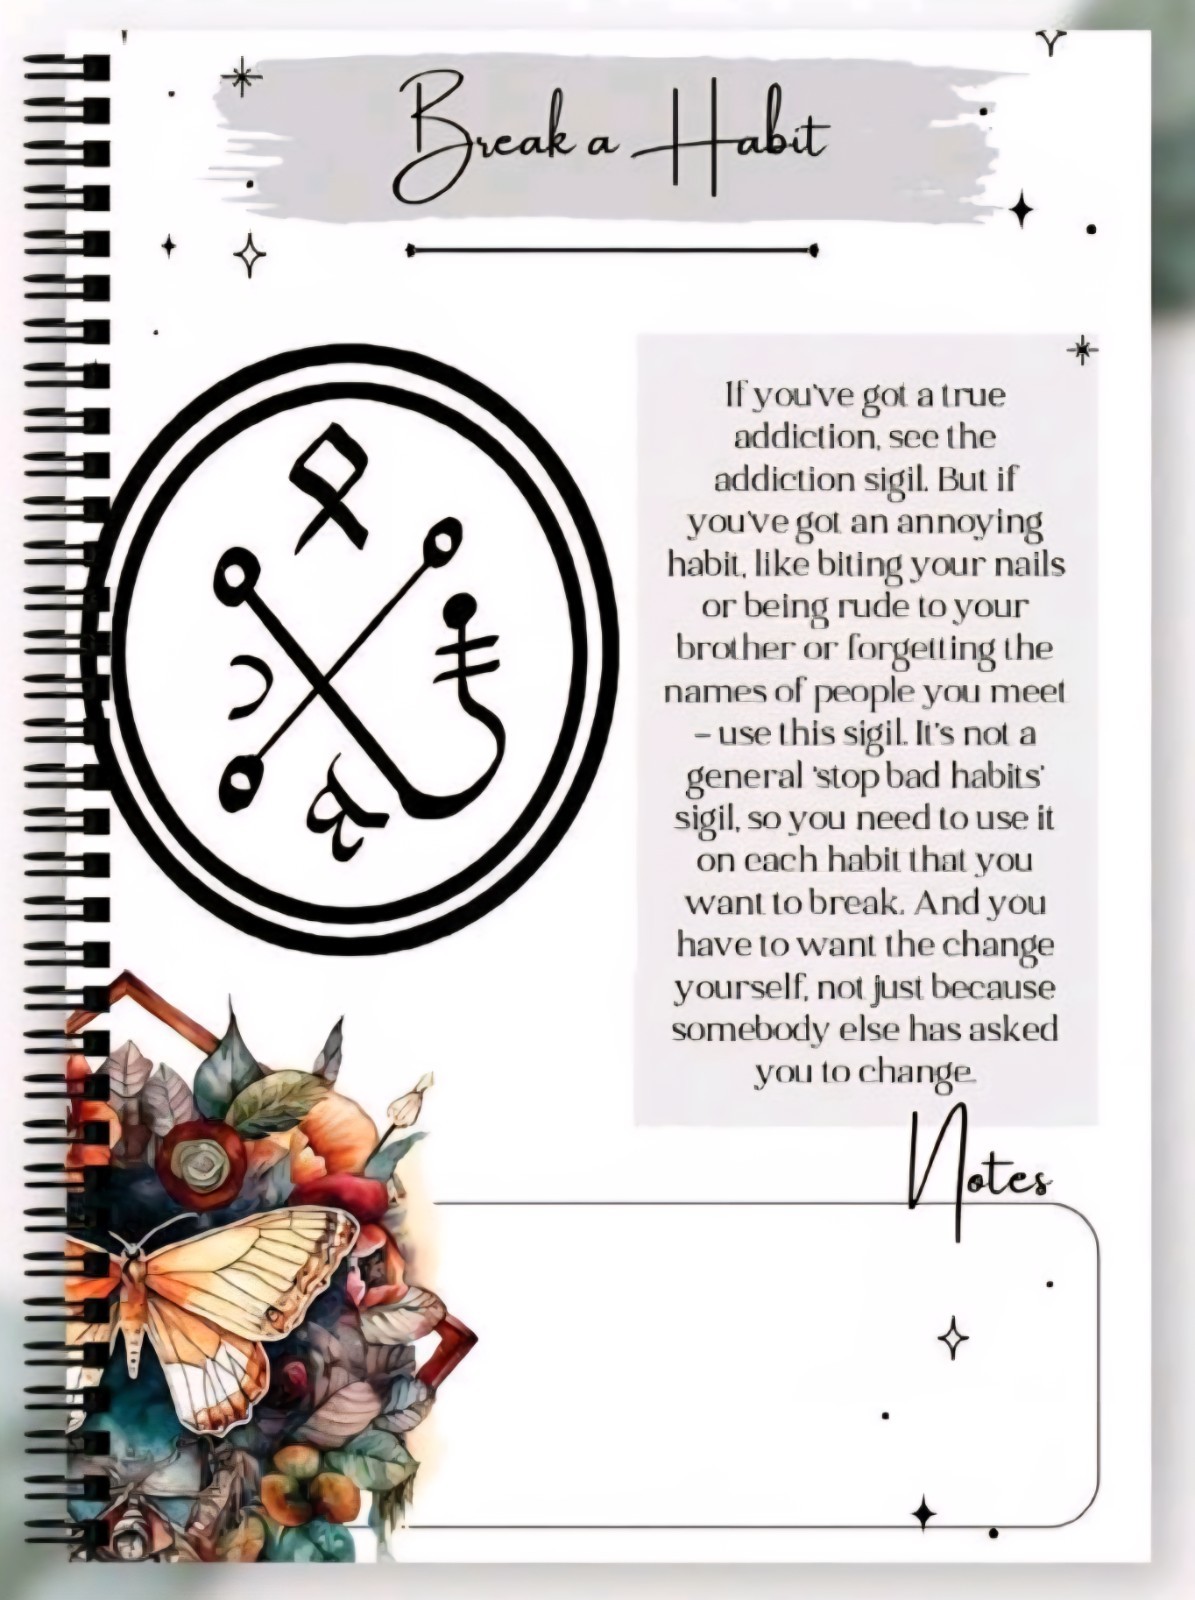 Break a Habit
If you've got a true
addiction, see the
addiction sigil. But if
you've got an annoying
habit, like biting your nails
or being rude to your
brother or forgetting the
names of people you meet
– use this sigil. It's not a
general 'stop bad habits'
sigil, so you need to use it
on each habit that you
want to break. And you
have to want the change
yourself, not just because
somebody else has asked
you to change.
Notes